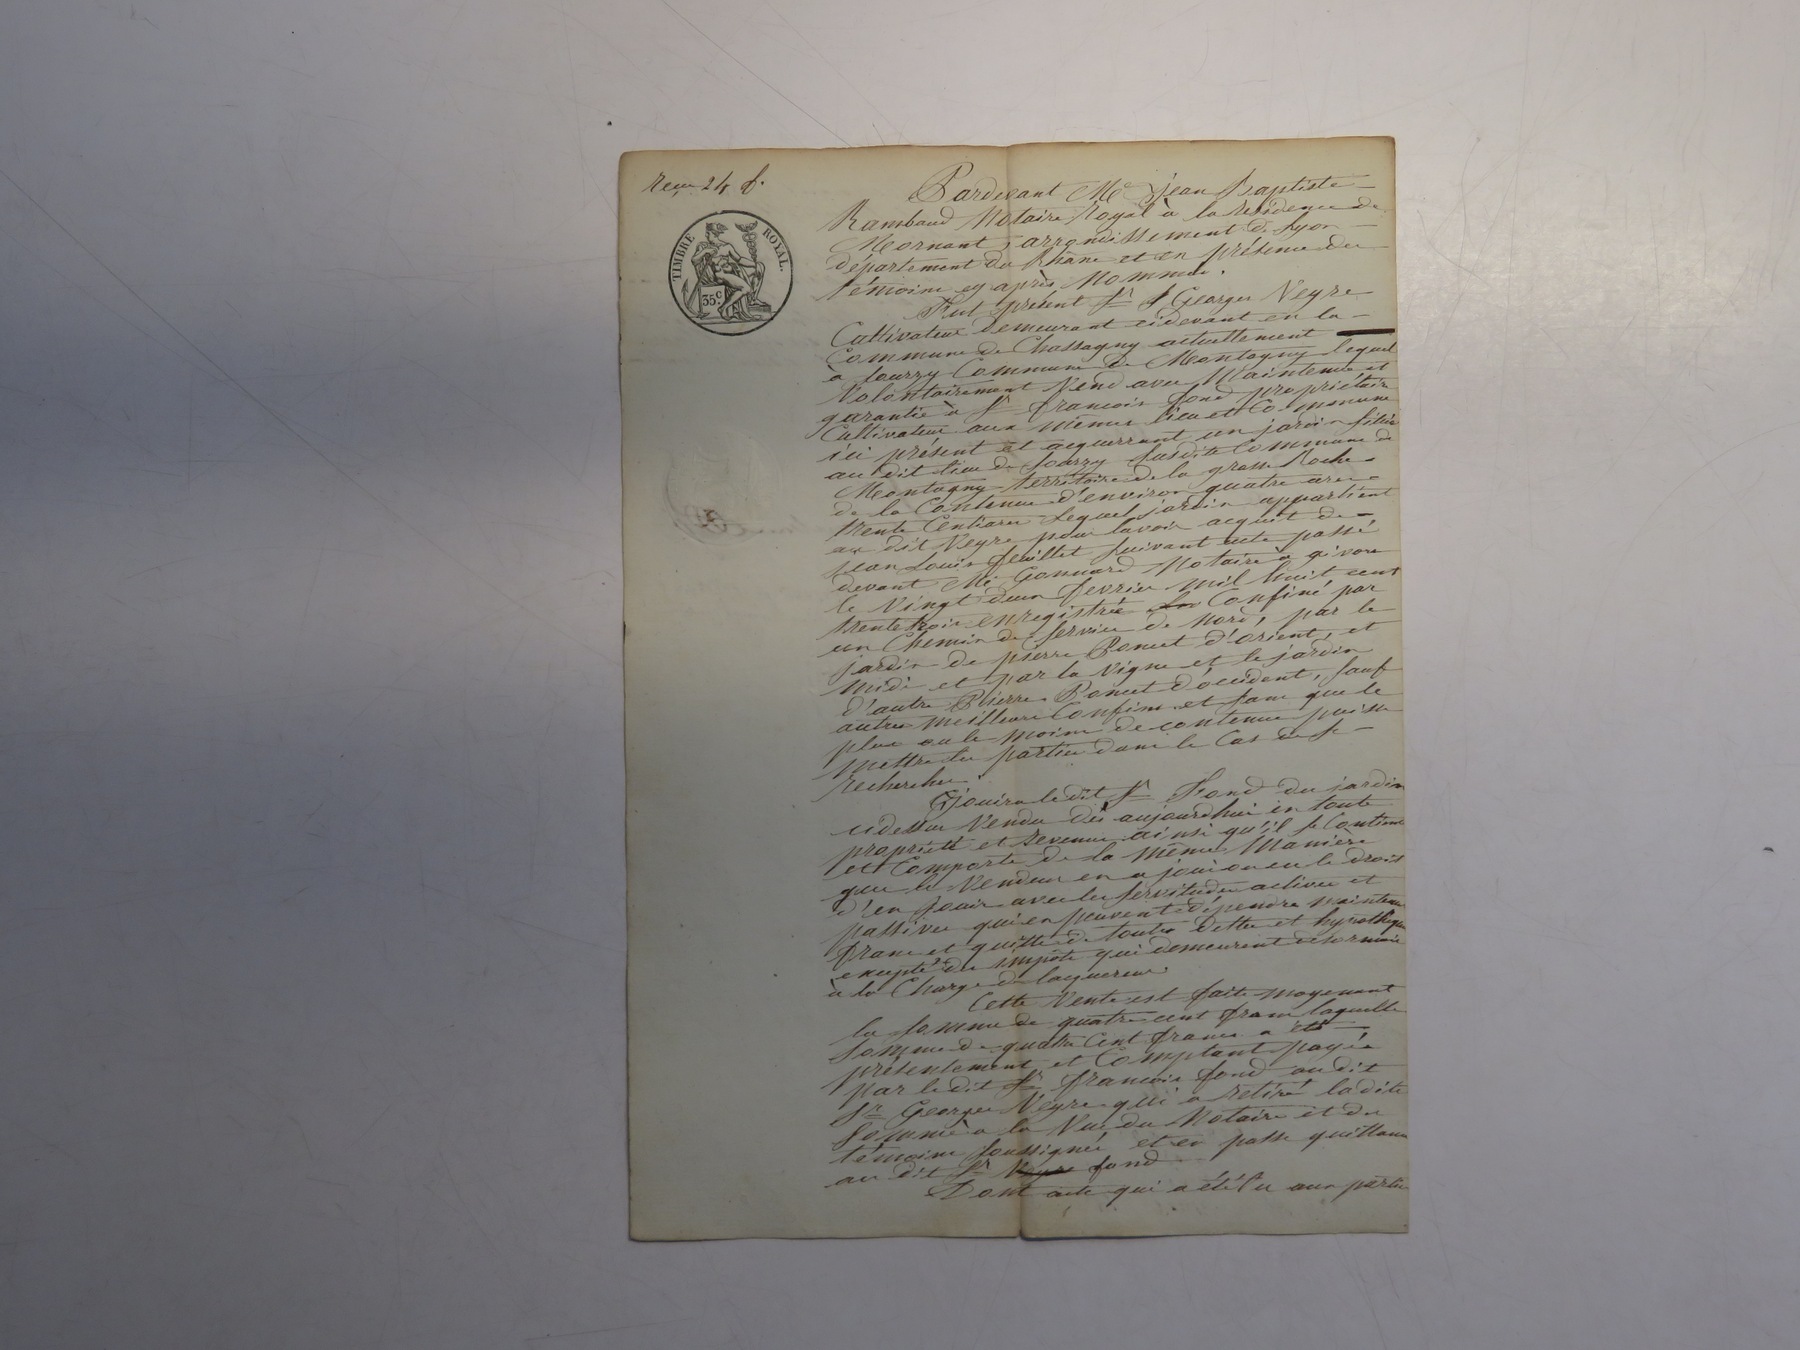 reçu 24 f.
TIMBRE ROYAL.
35 c.
Pardevant Me Jean Baptiste
Rambaud Notaire Royal à la résidence de
Mornant, arrondissement de Lyon
département du Rhône et en présence des
témoins cy après Nommés.
Fut présent Sr Georges Neyre
Cultivateur demeurant cidevant en la
Commune de Chassagny actuellement
à Sourzy Commune de Montagny lequel
Volontairement Vend avec Maintenue et
garantie à Sr françois fond propriétaire
Cultivateur aux mêmes lieu et Commune
ici présent et acquerrant un jardin situé
au dit lieu de Sourzy susdite Commune de
Montagny territoire de la grosse Roche
de la Contenue d'environ quatre ares
trente Centiares Lequel jardin appartient
au dit Neyre pour lavoir acquit de
jean Louis feuillet suivant acte passé
devant Me Gonnard Notaire à givors
le Vingt deux fevrier mil huit cent
trente trois enregistré Confiné par
un Chemin de service de Nord, par le
jardin de pierre Poncet d'orient, et
midi et par la Vigne et le jardin
d'autre Pierre Poncet d'occident, sauf
autres meilleurs Confins et sans que le
plus ou le moins de contenue puisse
mettre les parties dans le Cas de se
rechercher.
Jouira le dit Sr Fond du jardin
cidessus Vendu dès aujourdhui en toute
propriété et revenus ainsi qu'il se Contient
et Comporte de la même Manière
que le Vendeur en a joui ou eu le droit
d'en jouir avec les servitudes actives et
passives qui en peuvent dépendre maintenu
franc et quitte de toutes dettes et hypothèques
excepté des impôts qui demeurent désormais
à la Charge de lacquereur.
Cette Vente est faite moyenant
la somme de quatre cent francs laquelle
somme de quatre Cent francs a été
présentement et Comptant payée
par le dit Sr françois fond au dit
Sr Georges Neyre qui a retiré ladite
somme à la Vue du Notaire et des
témoins soussignés et en passe quittance
au dit Sr Neyre fond
Dont acte qui a été lu aux parties